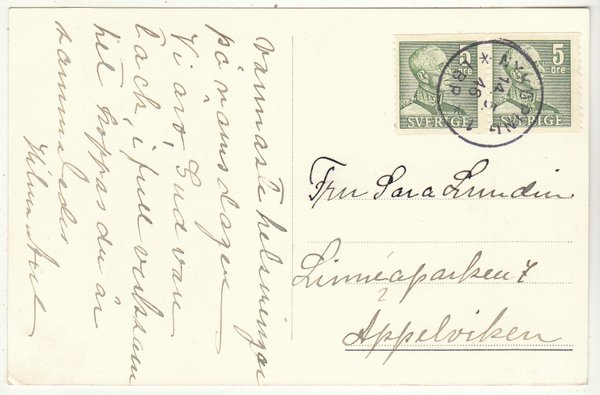 varmaste helsningar
på namnsdagen
Vi äro, Gud vare
tack, i full verksam
het hoppas du är
sammaledes
Hilma Axel
5
öre
SVERIGE
5
öre
SVERIGE
Fru Sara Lundin
Linnéaparken 7
Appelviken